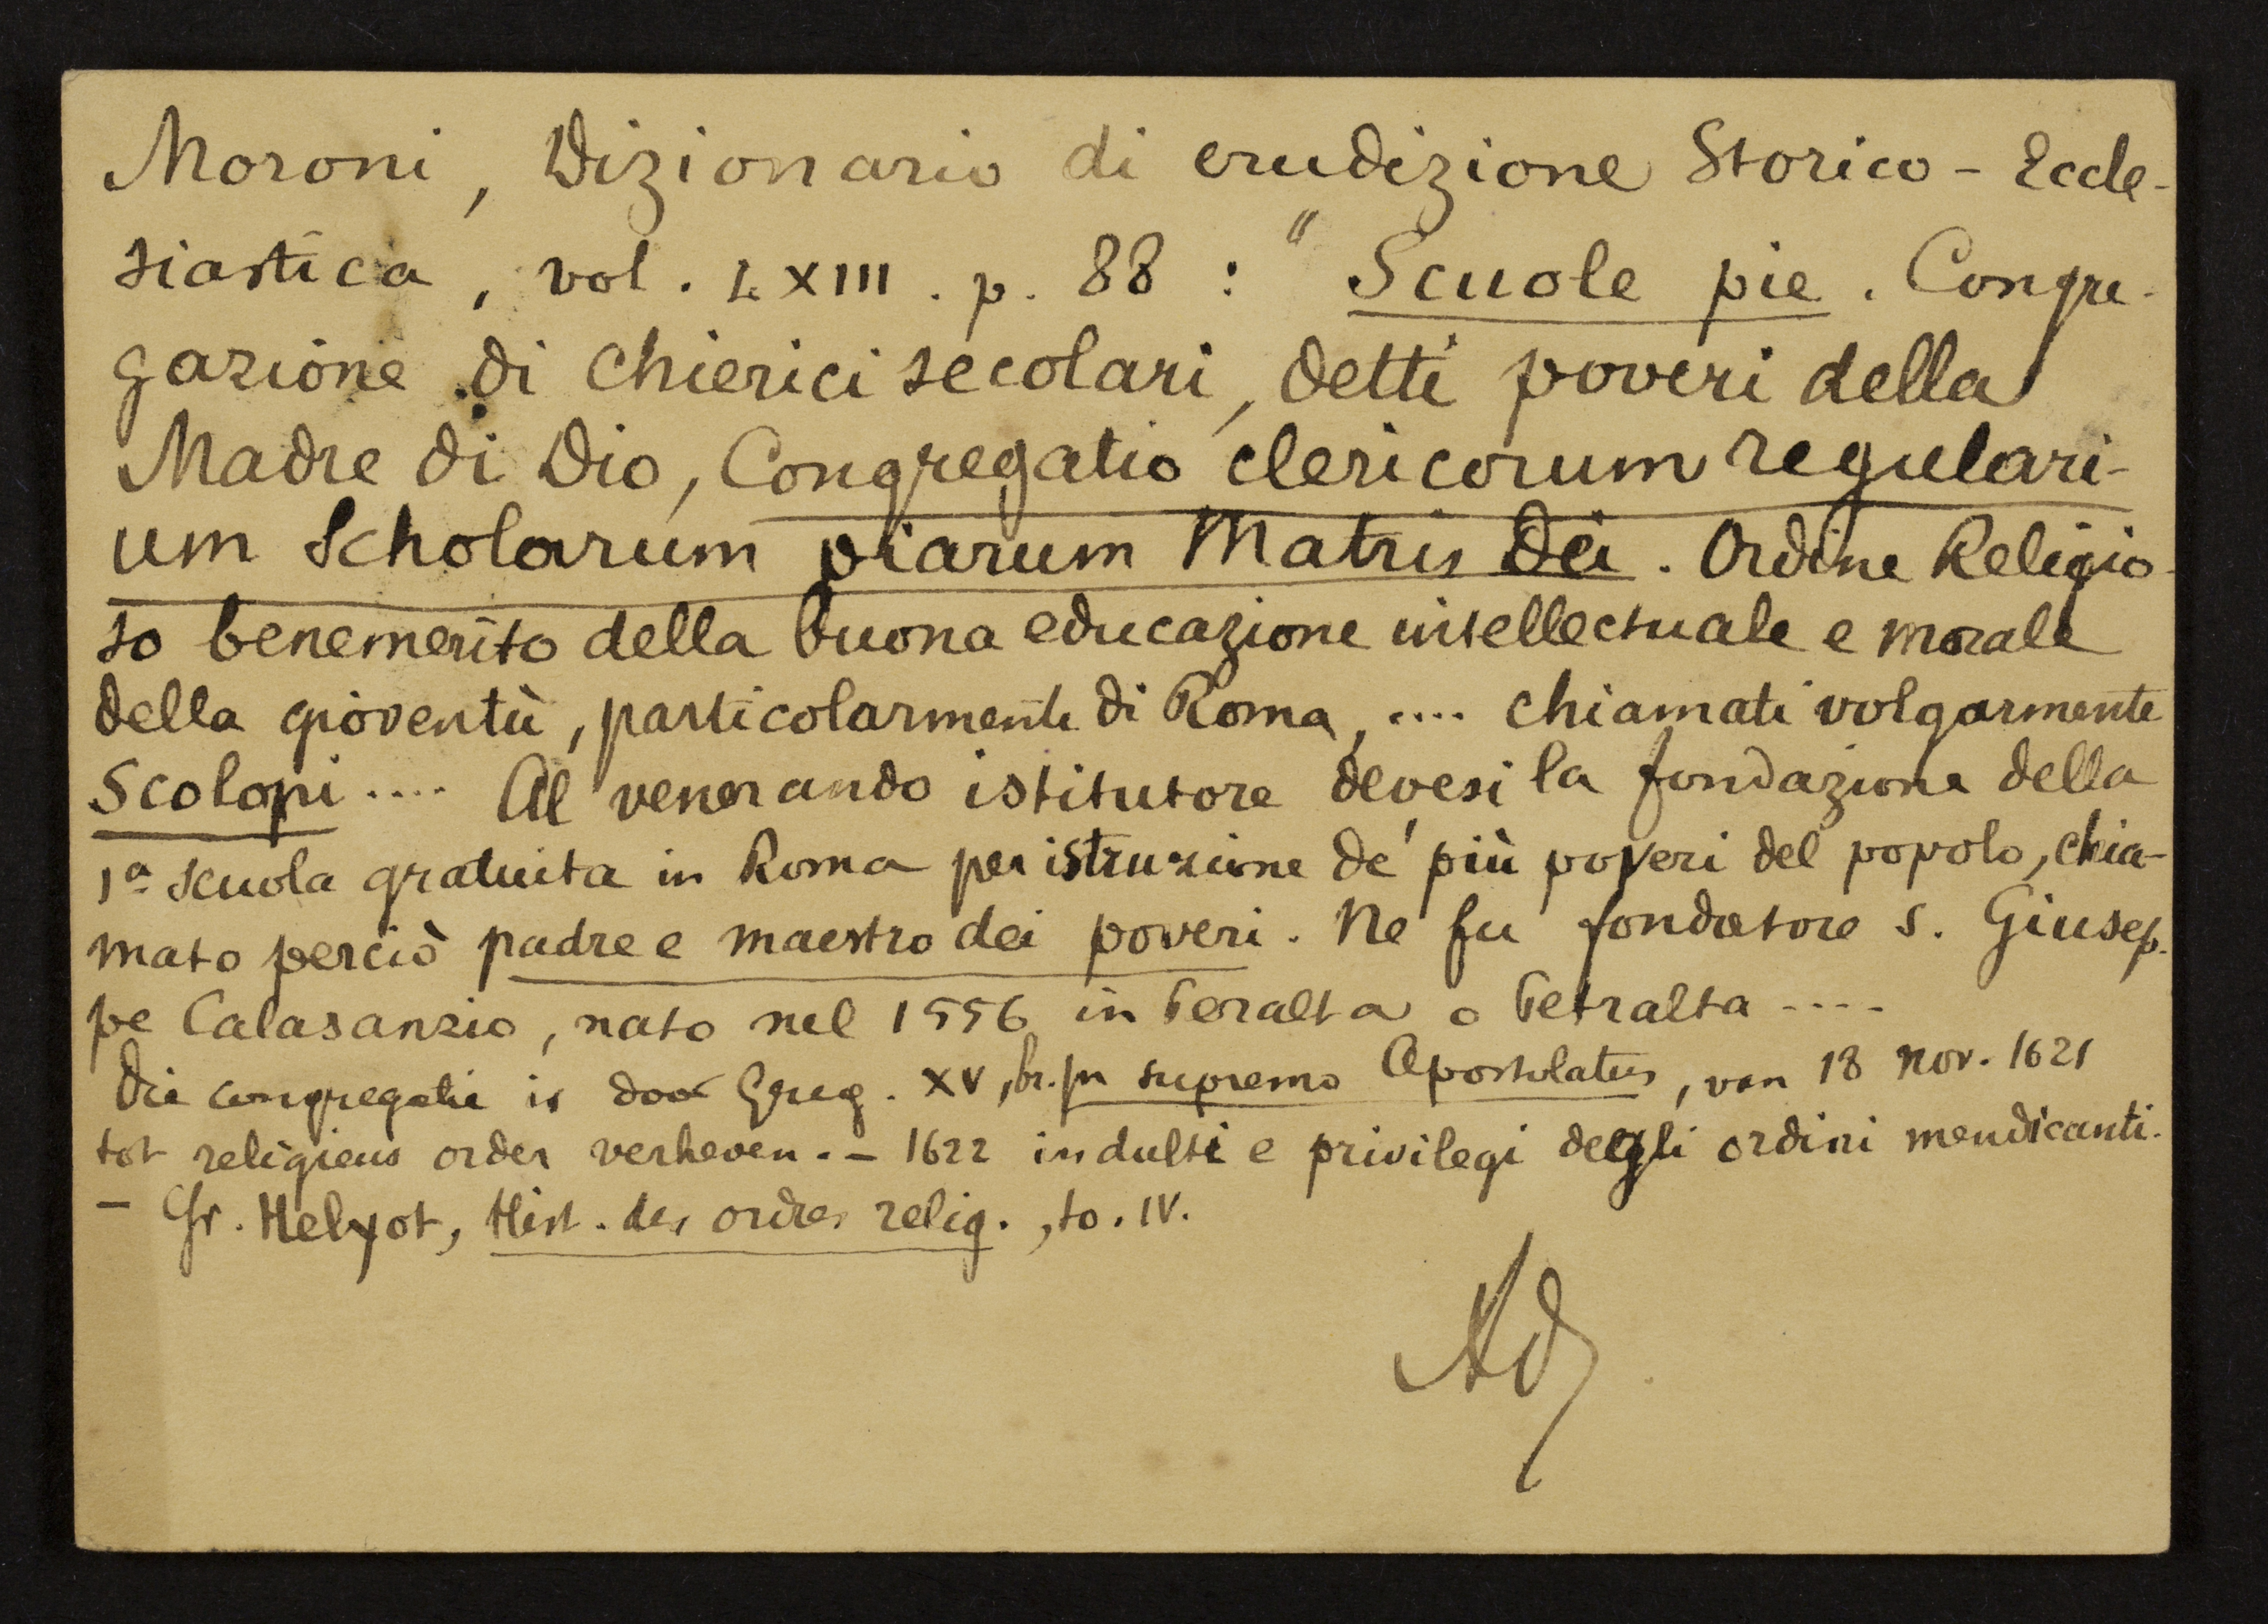 Moroni, Dizionario di erudizione Storico - Eccle-
siastica, vol. LXIII. p. 88 : "Scuole pie. Congre-
gazione di Chierici secolari, detti poveri della
Madre di Dio, Congregatio clericorum regulari-
um Scholarum piarum Matris Dei. Ordine Religio-
so benemerito della buona educazione intellectuale e morale
della gioventù, particolarmente di Roma, .... chiamati volgarmente
Scolopi .... Al venerando istitutore devesi la fondazione della
1a scuola gratuita in Roma per istruzione de' più poveri del popolo, chia-
mato perciò padre e maestro dei poveri. Ne fu fondatore S. Giusep-
pe Calasanzio, nato nel 1556 in Peralta o Petralta ----
Die congregatie is door Greg. XV, br. In supremo Apostolatus, van 18 Nov. 1621
tot religieus order verheven. - 1622 indulti e privilegi degli ordini mendicanti.
- Cfr. Helyot, Hist. des ordres relig., to. IV.